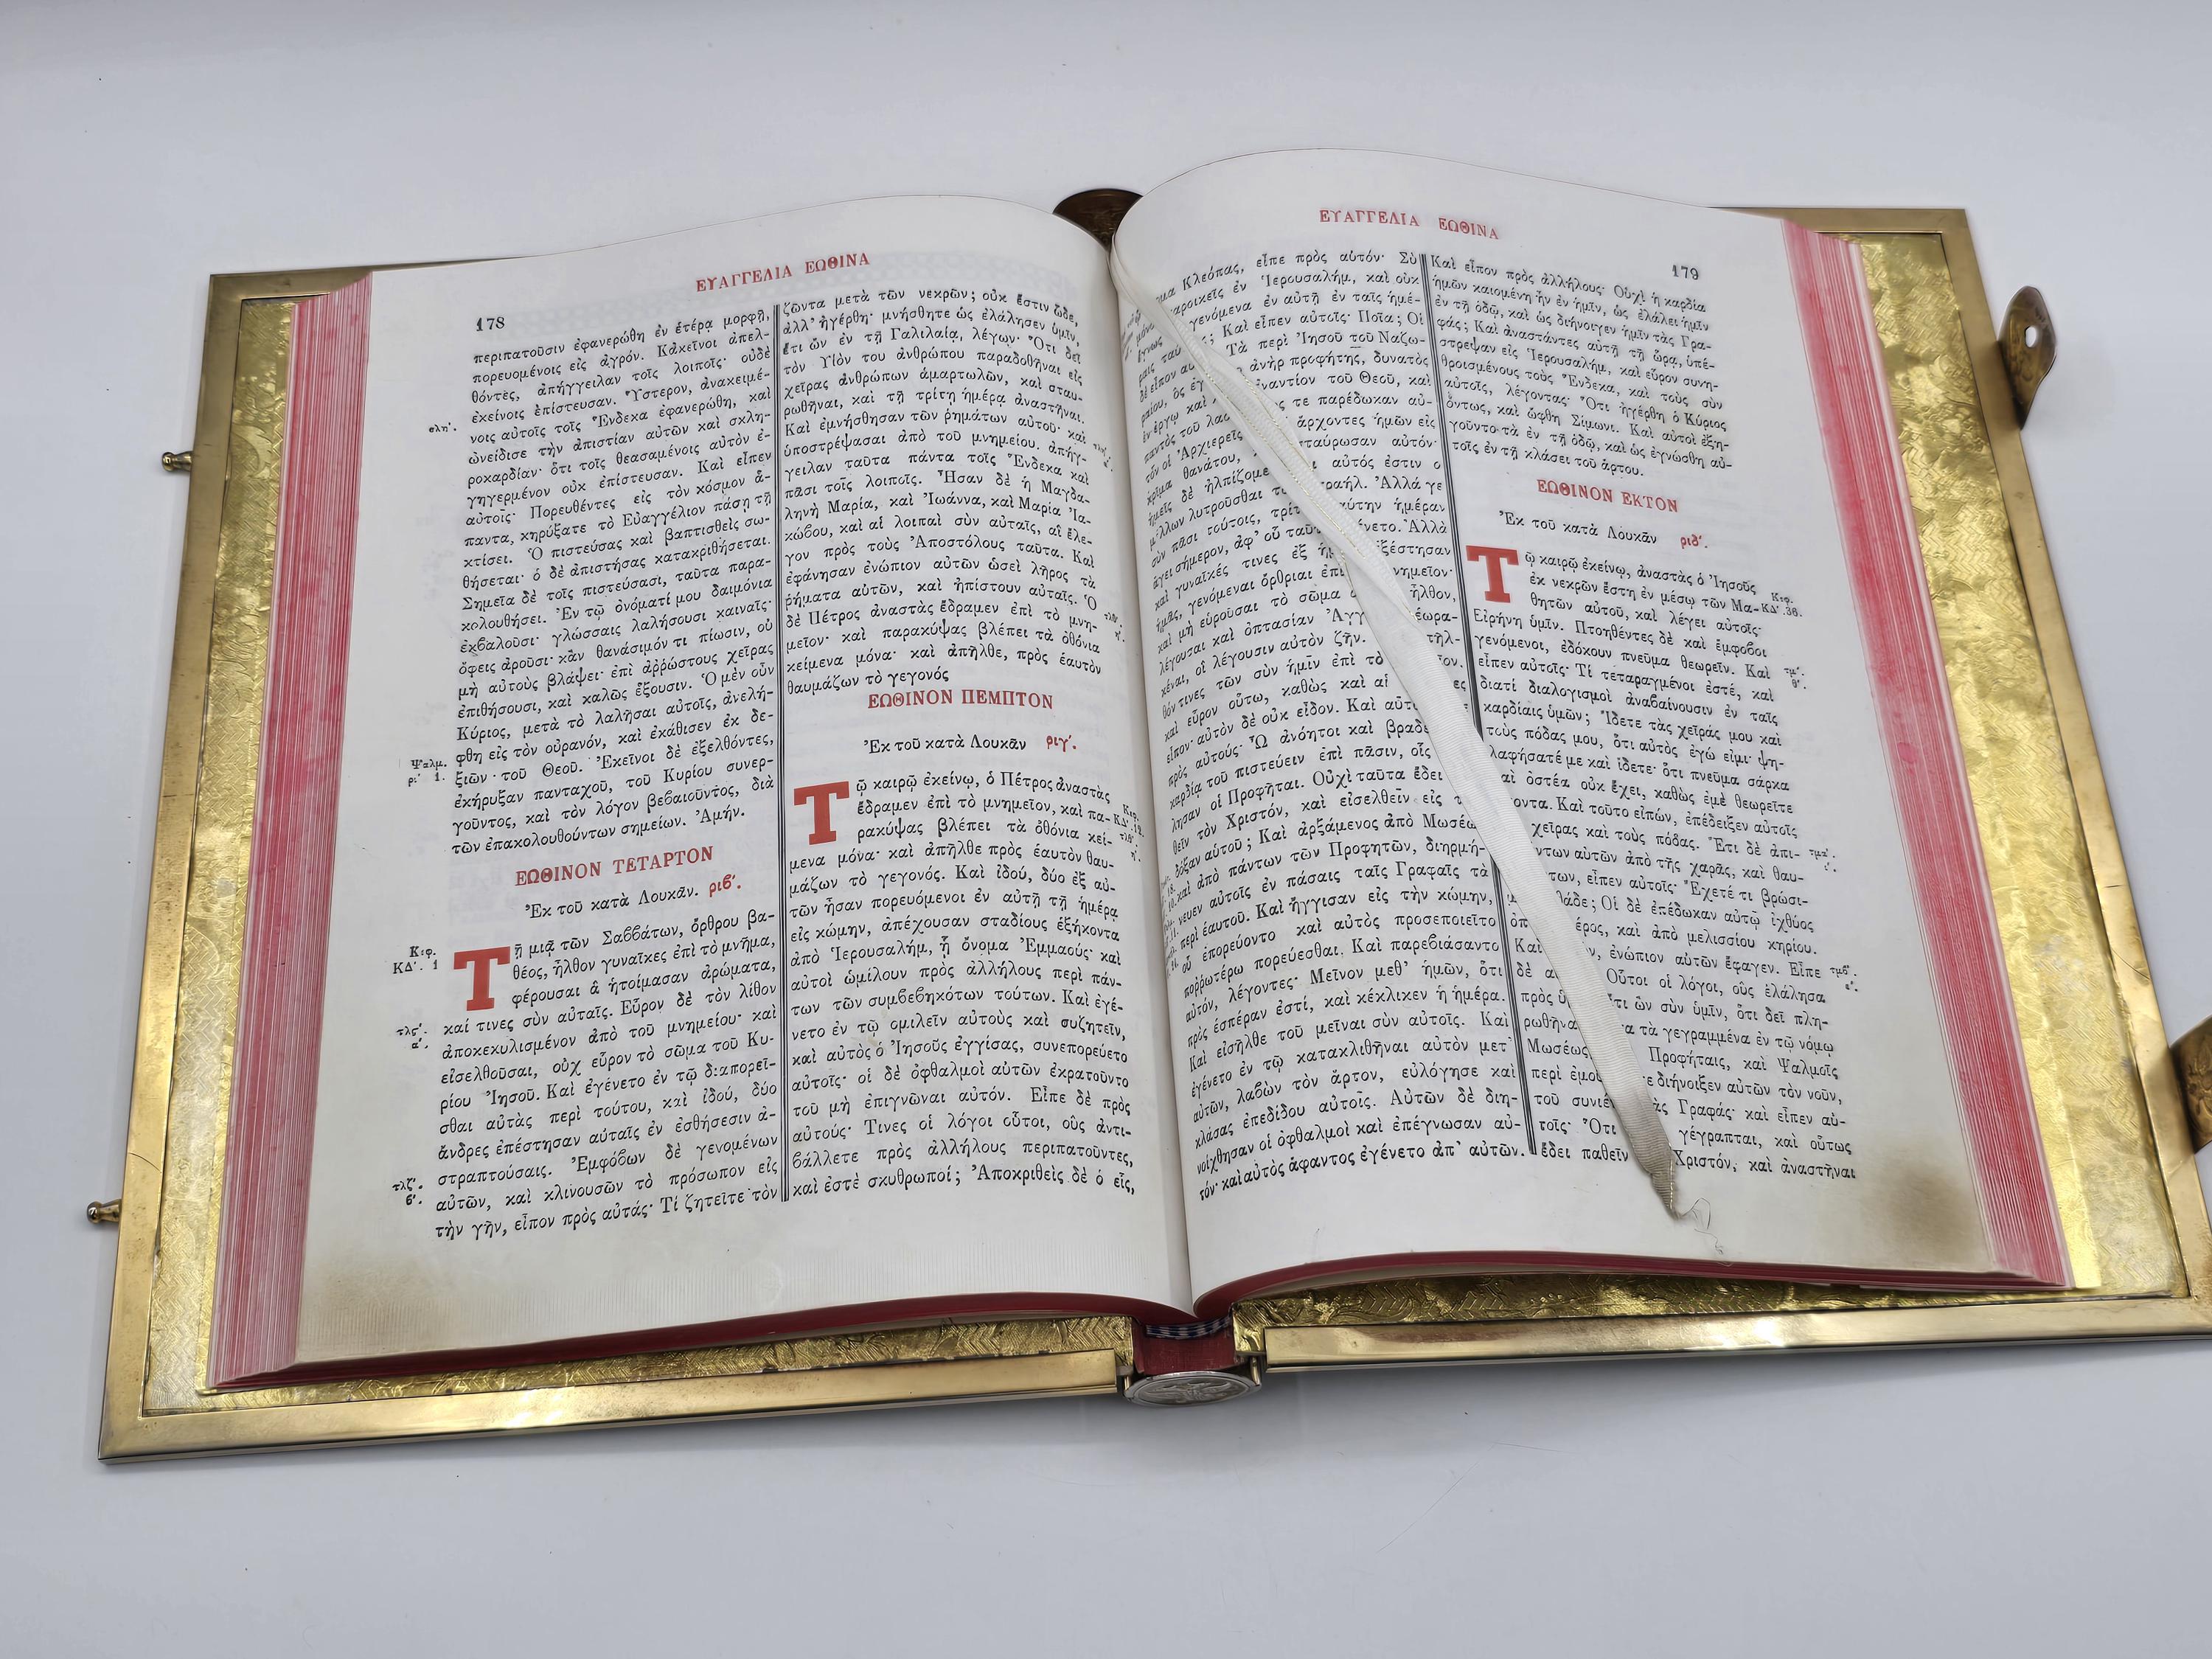 178
ΕΥΑΓΓΕΛΙΑ ΕΩΘΙΝΑ
περιπατοῦσιν ἐφανερώθη ἐν ἑτέρᾳ μορφῇ,
πορευομένοις εἰς ἀγρόν. Κἀκεῖνοι ἀπελ-
θόντες, ἀπήγγειλαν τοῖς λοιποῖς· οὐδὲ
ἐκείνοις ἐπίστευσαν. Ὕστερον, ἀνακειμέ-
νοις αὐτοῖς τοῖς Ἕνδεκα ἐφανερώθη, καὶ
ὠνείδισε τὴν ἀπιστίαν αὐτῶν καὶ σκλη-
ροκαρδίαν· ὅτι τοῖς θεασαμένοις αὐτὸν ἐ-
γηγερμένον οὐκ ἐπίστευσαν. Καὶ εἶπεν
αὐτοῖς· Πορευθέντες εἰς τὸν κόσμον ἅ-
παντα, κηρύξατε τὸ Εὐαγγέλιον πάσῃ τῇ
κτίσει. Ὁ πιστεύσας καὶ βαπτισθεὶς σω-
θήσεται· ὁ δὲ ἀπιστήσας κατακριθήσεται.
Σημεῖα δὲ τοῖς πιστεύσασι, ταῦτα παρα-
κολουθήσει. Ἐν τῷ ὀνόματί μου δαιμόνια
ἐκβαλοῦσι· γλώσσαις λαλήσουσι καιναῖς·
ὄφεις ἀροῦσι· κἂν θανάσιμόν τι πίωσιν, οὐ
μὴ αὐτοὺς βλάψει· ἐπὶ ἀῤῥώστους χεῖρας
ἐπιθήσουσι, καὶ καλῶς ἕξουσιν. Ὁ μὲν οὖν
Κύριος, μετὰ τὸ λαλῆσαι αὐτοῖς, ἀνελή-
φθη εἰς τὸν οὐρανόν, καὶ ἐκάθισεν ἐκ δε-
Ψαλμ. ρι΄ 1.
ξιῶν τοῦ Θεοῦ. Ἐκεῖνοι δὲ ἐξελθόντες,
ἐκήρυξαν πανταχοῦ, τοῦ Κυρίου συνερ-
γοῦντος, καὶ τὸν λόγον βεβαιοῦντος, διὰ
τῶν ἐπακολουθούντων σημείων. Ἀμήν.
ΕΩΘΙΝΟΝ ΤΕΤΑΡΤΟΝ
Ἐκ τοῦ κατὰ Λουκᾶν. ριβ΄.
Κεφ. ΚΔ΄. 1
Τῇ μιᾷ τῶν Σαββάτων, ὄρθρου βα-
θέος, ἦλθον γυναῖκες ἐπὶ τὸ μνῆμα,
φέρουσαι ἃ ἡτοίμασαν ἀρώματα,
καί τινες σὺν αὐταῖς. Εὗρον δὲ τὸν λίθον
ἀποκεκυλισμένον ἀπὸ τοῦ μνημείου· καὶ
εἰσελθοῦσαι, οὐχ εὗρον τὸ σῶμα τοῦ Κυ-
ρίου Ἰησοῦ. Καὶ ἐγένετο ἐν τῷ διαπορεῖ-
σθαι αὐτὰς περὶ τούτου, καὶ ἰδού, δύο
ἄνδρες ἐπέστησαν αὐταῖς ἐν ἐσθήσεσιν ἀ-
στραπτούσαις. Ἐμφόβων δὲ γενομένων
αὐτῶν, καὶ κλινουσῶν τὸ πρόσωπον εἰς
τὴν γῆν, εἶπον πρὸς αὐτάς· Τί ζητεῖτε τὸν
ζῶντα μετὰ τῶν νεκρῶν; οὐκ ἔστιν ὧδε,
ἀλλ' ἠγέρθη· μνήσθητε ὡς ἐλάλησεν ὑμῖν,
ἔτι ὢν ἐν τῇ Γαλιλαίᾳ, λέγων· Ὅτι δεῖ
τὸν Υἱὸν του ἀνθρώπου παραδοθῆναι εἰς
χεῖρας ἀνθρώπων ἁμαρτωλῶν, καὶ σταυ-
ρωθῆναι, καὶ τῇ τρίτῃ ἡμέρᾳ ἀναστῆναι.
Καὶ ἐμνήσθησαν τῶν ῥημάτων αὐτοῦ· καὶ
ὑποστρέψασαι ἀπὸ τοῦ μνημείου. ἀπήγ-
γειλαν ταῦτα πάντα τοῖς Ἕνδεκα καὶ
πᾶσι τοῖς λοιποῖς. Ἦσαν δὲ ἡ Μαγδα-
ληνὴ Μαρία, καὶ Ἰωάννα, καὶ Μαρία Ἰα-
κώβου, καὶ αἱ λοιπαὶ σὺν αὐταῖς, αἳ ἔλε-
γον πρὸς τοὺς Ἀποστόλους ταῦτα. Καὶ
ἐφάνησαν ἐνώπιον αὐτῶν ὡσεὶ λῆρος τὰ
ῥήματα αὐτῶν, καὶ ἠπίστουν αὐταῖς. Ὁ
δὲ Πέτρος ἀναστὰς ἔδραμεν ἐπὶ τὸ μνη-
μεῖον· καὶ παρακύψας βλέπει τὰ ὀθόνια
κείμενα μόνα· καὶ ἀπῆλθε, πρὸς ἑαυτὸν
θαυμάζων τὸ γεγονός
ΕΩΘΙΝΟΝ ΠΕΜΠΤΟΝ
Ἐκ τοῦ κατὰ Λουκᾶν ριγ΄.
Τῷ καιρῷ ἐκείνῳ, ὁ Πέτρος ἀναστὰς
ἔδραμεν ἐπὶ τὸ μνημεῖον, καὶ πα-
ρακύψας βλέπει τὰ ὀθόνια κεί-
μενα μόνα· καὶ ἀπῆλθε πρὸς ἑαυτὸν θαυ-
μάζων τὸ γεγονός. Καὶ ἰδού, δύο ἐξ αὐ-
τῶν ἦσαν πορευόμενοι ἐν αὐτῇ τῇ ἡμέρᾳ
εἰς κώμην, ἀπέχουσαν σταδίους ἑξήκοντα
ἀπὸ Ἱερουσαλήμ, ᾗ ὄνομα Ἐμμαούς· καὶ
αὐτοὶ ὡμίλουν πρὸς ἀλλήλους περὶ πάν-
των τῶν συμβεβηκότων τούτων. Καὶ ἐγέ-
νετο ἐν τῷ ὁμιλεῖν αὐτοὺς καὶ συζητεῖν,
καὶ αὐτὸς ὁ Ἰησοῦς ἐγγίσας, συνεπορεύετο
αὐτοῖς· οἱ δὲ ὀφθαλμοὶ αὐτῶν ἐκρατοῦντο
τοῦ μὴ ἐπιγνῶναι αὐτόν. Εἶπε δὲ πρὸς
αὐτούς· Τινες οἱ λόγοι οὗτοι, οὓς ἀντι-
βάλλετε πρὸς ἀλλήλους περιπατοῦντες,
καὶ ἐστὲ σκυθρωποί; Ἀποκριθεὶς δὲ ὁ εἷς,
ΕΥΑΓΓΕΛΙΑ ΕΩΘΙΝΑ
179
Κλεόπας, εἶπε πρὸς αὐτόν· Σὺ
ἐν Ἱερουσαλήμ, καὶ οὐκ
γενόμενα ἐν αὐτῇ ἐν ταῖς ἡμέ-
Καὶ εἶπεν αὐτοῖς· Ποῖα; Οἱ
Τὰ περὶ Ἰησοῦ τοῦ Ναζω-
ἀνὴρ προφήτης, δυνατὸς
ἐν ἔργῳ καὶ ἐναντίον τοῦ Θεοῦ, καὶ
παντὸς τοῦ τε παρέδωκαν αὐ-
τὸν οἱ Ἀρχιερεῖς ἄρχοντες ἡμῶν εἰς
κρῖμα θανάτου, αὐτόν·
ἡμεῖς δὲ αὐτός ἐστιν ὁ
μέλλων λυτροῦσθαι Ἀλλά γε
σὺν πᾶσι τούτοις, ἡμέραν
ἄγει σήμερον, ἀφ' οὗ Ἀλλὰ
καὶ γυναῖκές τινες ἐξ ἐξέστησαν
ἡμᾶς, γενόμεναι ὄρθριαι
καὶ μὴ εὑροῦσαι τὸ σῶμα ἦλθον,
λέγουσαι καὶ ὀπτασίαν
κέναι, οἳ λέγουσιν αὐτὸν ζῆν.
θόν τινες τῶν σὺν ἡμῖν ἐπὶ τὸ
καὶ εὗρον οὕτω, καθὼς καὶ αἱ
εἶπον· αὐτὸν δὲ οὐκ εἶδον. Καὶ
πρὸς αὐτούς· Ὦ ἀνόητοι καὶ
καρδίᾳ τοῦ πιστεύειν ἐπὶ πᾶσιν, οἷς
λησαν οἱ Προφῆται. Οὐχὶ ταῦτα ἔδει
θεῖν τὸν Χριστόν, καὶ εἰσελθεῖν εἰς
δόξαν αὑτοῦ; Καὶ ἀρξάμενος ἀπὸ Μωσέω
καὶ ἀπὸ πάντων τῶν Προφητῶν, διηρμή-
νευεν αὐτοῖς ἐν πάσαις ταῖς Γραφαῖς τὰ
περὶ ἑαυτοῦ. Καὶ ἤγγισαν εἰς τὴν κώμην,
οὗ ἐπορεύοντο καὶ αὐτὸς προσεποιεῖτο
ποῤῥωτέρω πορεύεσθαι. Καὶ παρεβιάσαντο
αὐτόν, λέγοντες· Μεῖνον μεθ' ἡμῶν, ὅτι
πρὸς ἑσπέραν ἐστί, καὶ κέκλικεν ἡ ἡμέρα.
Καὶ εἰσῆλθε τοῦ μεῖναι σὺν αὐτοῖς. Καὶ
ἐγένετο ἐν τῷ κατακλιθῆναι αὐτὸν μετ'
αὐτῶν, λαβὼν τὸν ἄρτον, εὐλόγησε καὶ
κλάσας ἐπεδίδου αὐτοῖς. Αὐτῶν δὲ διη-
νοίχθησαν οἱ ὀφθαλμοὶ καὶ ἐπέγνωσαν αὐ-
τόν· καὶ αὐτὸς ἄφαντος ἐγένετο ἀπ' αὐτῶν.
Καὶ εἶπον πρὸς ἀλλήλους· Οὐχὶ ἡ καρδία
ἡμῶν καιομένη ἦν ἐν ἡμῖν, ὡς ἐλάλει ἡμῖν
ἐν τῇ ὁδῷ, καὶ ὡς διήνοιγεν ἡμῖν τὰς Γρα-
φάς; Καὶ ἀναστάντες αὐτῇ τῇ ὥρᾳ, ὑπέ-
στρεψαν εἰς Ἱερουσαλήμ, καὶ εὗρον συνη-
θροισμένους τοὺς Ἕνδεκα, καὶ τοὺς σὺν
αὐτοῖς, λέγοντας· Ὅτι ἠγέρθη ὁ Κύριος
ὄντως, καὶ ὤφθη Σίμωνι. Καὶ αὐτοὶ ἐξη-
γοῦντο τὰ ἐν τῇ ὁδῷ, καὶ ὡς ἐγνώσθη αὐ-
τοῖς ἐν τῇ κλάσει τοῦ ἄρτου.
ΕΩΘΙΝΟΝ ΕΚΤΟΝ
Ἐκ τοῦ κατὰ Λουκᾶν ριδ΄.
Τῷ καιρῷ ἐκείνῳ, ἀναστὰς ὁ Ἰησοῦς
ἐκ νεκρῶν ἔστη ἐν μέσῳ τῶν Μα-
Κεφ. ΚΔ΄. 36.
θητῶν αὐτοῦ, καὶ λέγει αὐτοῖς·
Εἰρήνη ὑμῖν. Πτοηθέντες δὲ καὶ ἔμφοβοι
γενόμενοι, ἐδόκουν πνεῦμα θεωρεῖν. Καὶ
εἶπεν αὐτοῖς· Τί τεταραγμένοι ἐστέ, καὶ
διατί διαλογισμοὶ ἀναβαίνουσιν ἐν ταῖς
καρδίαις ὑμῶν; Ἴδετε τὰς χεῖράς μου καὶ
τοὺς πόδας μου, ὅτι αὐτὸς ἐγώ εἰμι· ψη-
λαφήσατέ με καὶ ἴδετε· ὅτι πνεῦμα σάρκα
καὶ ὀστέα οὐκ ἔχει, καθὼς ἐμὲ θεωρεῖτε
Καὶ τοῦτο εἰπών, ἐπέδειξεν αὐτοῖς
χεῖρας καὶ τοὺς πόδας. Ἔτι δὲ ἀπι-
αὐτῶν ἀπὸ τῆς χαρᾶς, καὶ θαυ-
εἶπεν αὐτοῖς· Ἔχετέ τι βρώσι-
Οἱ δὲ ἐπέδωκαν αὐτῷ ἰχθύος
καὶ ἀπὸ μελισσίου κηρίου.
Καὶ ἐνώπιον αὐτῶν ἔφαγεν. Εἶπε
δὲ Οὗτοι οἱ λόγοι, οὓς ἐλάλησα
πρὸς ὢν σὺν ὑμῖν, ὅτι δεῖ πλη-
τὰ γεγραμμένα ἐν τῷ νόμῳ
Μωσέως, Προφήταις, καὶ Ψαλμοῖς
περὶ διήνοιξεν αὐτῶν τὸν νοῦν,
τοῦ Γραφάς· καὶ εἶπεν αὐ-
τοῖς· Ὅτι γέγραπται, καὶ οὕτως
ἔδει παθεῖν Χριστόν, καὶ ἀναστῆναι